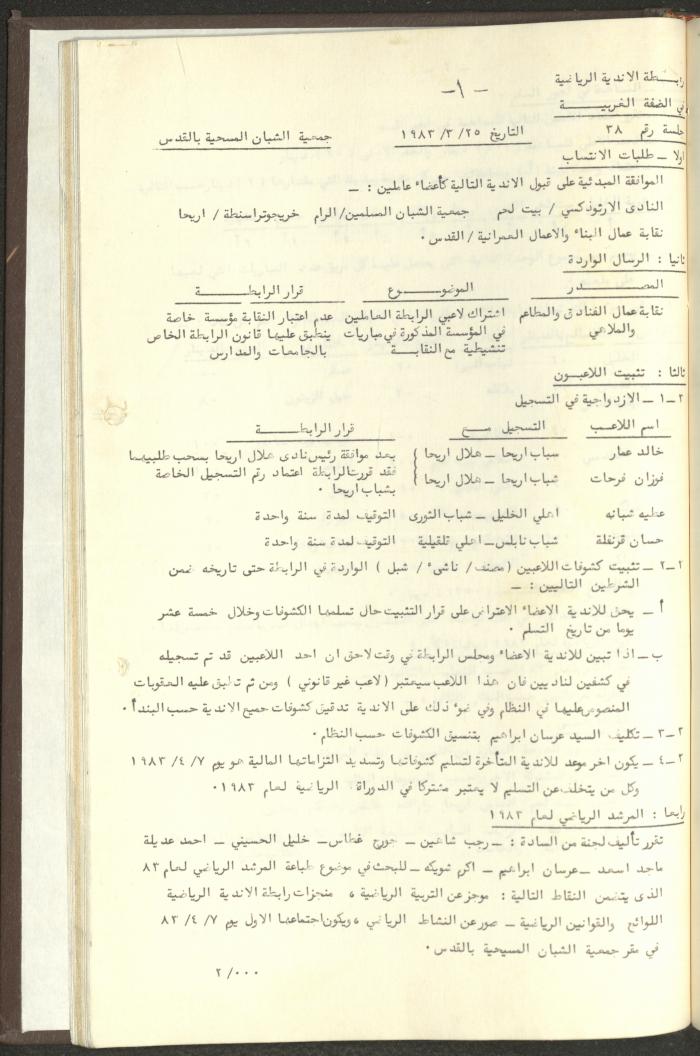 - ١ -
رابطة الاندية الرياضية
في الضفة الغربية
جلسة رقم ٣٨ التاريخ ٢٥/٣/١٩٨٣ جمعية الشبان المسحية بالقدس
اولا ـ طلبات الانتساب
الموافقة المبدئية على قبول الاندية التالية كأعضاء عاملين : ـ
النادى الارثوذكسي / بيت لحم جمعية الشبان المسلمين/الرام خريجوتراسنطة / اريحا
نقابة عمال البناء والاعمال العمرانية / القدس ٠
ثانيا : الرسال الواردة
المصدر الموضوع قرار الرابطة
نقابة عمال الفنادق والمطاعم اشتراك لاعبي الرابطة العاملين عدم اعتبار النقابة مؤسسة خاصة
والملاهي في المؤسسة المذكورة في مباريات ينطبق عليها قانون الرابطة الخاص
تنشيطية مع النقابة بالجامعات والمدارس
ثالثا : تثبيت اللاعبون
٢ـ١ ـ الازدواجية في التسجيل
اسم اللاعب التسجيل مع قرار الرابطة
خالد عمار سباب اريحا ـ هلال اريحا بعد موافقة رئيس نادى هلال اريحا بسحب طلبيهما
فقد قررت الرابطة اعتماد رقم التسجيل الخاصة
فوزان فرحات شباب اريحا ـ هلال اريحا بشباب اريحا ٠
عطيه شبانه اهلي الخليل ـ شباب الثورى التوقيف لمدة سنة واحدة
حسان قرنفلة شباب نابلس ـ اهلي قلقيلية التوقيف لمدة سنة واحدة
٢ـ٢ ـ تثبيت كشوفات اللاعبين (مصنف/ ناشىء / شبل ) الواردة في الرابطة حتى تاريخه ضمن
الشرطين التاليين : ـ
أ ـ يحق للاندية الاعضاء الاعتراض على قرار التثبيت حال تسلمها الكشوفات وخلال خمسة عشر
يوما من تاريخ التسلم ٠
ب ـ اذا تبين للاندية الاعضاء ومجلس الرابطة في وقت لاحق ان احد اللاعبين قد تم تسجيله
في كشفين لناديين فان هذا اللاعب سيعتبر (لاعب غير قانوني ) ومن ثم تطبق عليه العقوبات
المنصوص عليها في النظام وفي ضوء ذلك على الاندية تدقيق كشوفات جميع الاندية حسب البند أ ٠
٢ـ٣ ـ تكليف السيد عرسان ابراهيم بتنسيق الكشوفات حسب النظام ٠
٢ـ٤ ـ يكون اخر موعد للاندية المتأخرة لتسليم كشوفاتها وتسديد التزاماتها المالية هو يوم ٧/ ٤/ ١٩٨٣
وكل من يتخلف عن التسليم لا يعتبر مشتركا في الدوراة الرياضية لعام ١٩٨٣ ٠
رابعا : المرشد الرياضي لعام ١٩٨٣
تقرر تأليف لجنة من السادة : ـ رجب شاهين ـ جورج غطاس ـ خليل الحسيني ـ احمد عديلة
ماجد اسعد ـ عرسان ابراهيم ـ اكرم شويكه ـ للبحث في موضوع طباعة المرشد الرياضي لعام ٨٣
الذى يتضمن النقاط التالية : موجز عن التربية الرياضية ، منجزات رابطة الاندية الرياضية
اللوائح والقوانين الرياضية ـ صور عن النشاط الرياضي ، ويكون اجتماعها الاول يوم ٧/ ٤/ ٨٣
في مقر جمعية الشبان المسيحية بالقدس ٠
٠٠٠/ ٢